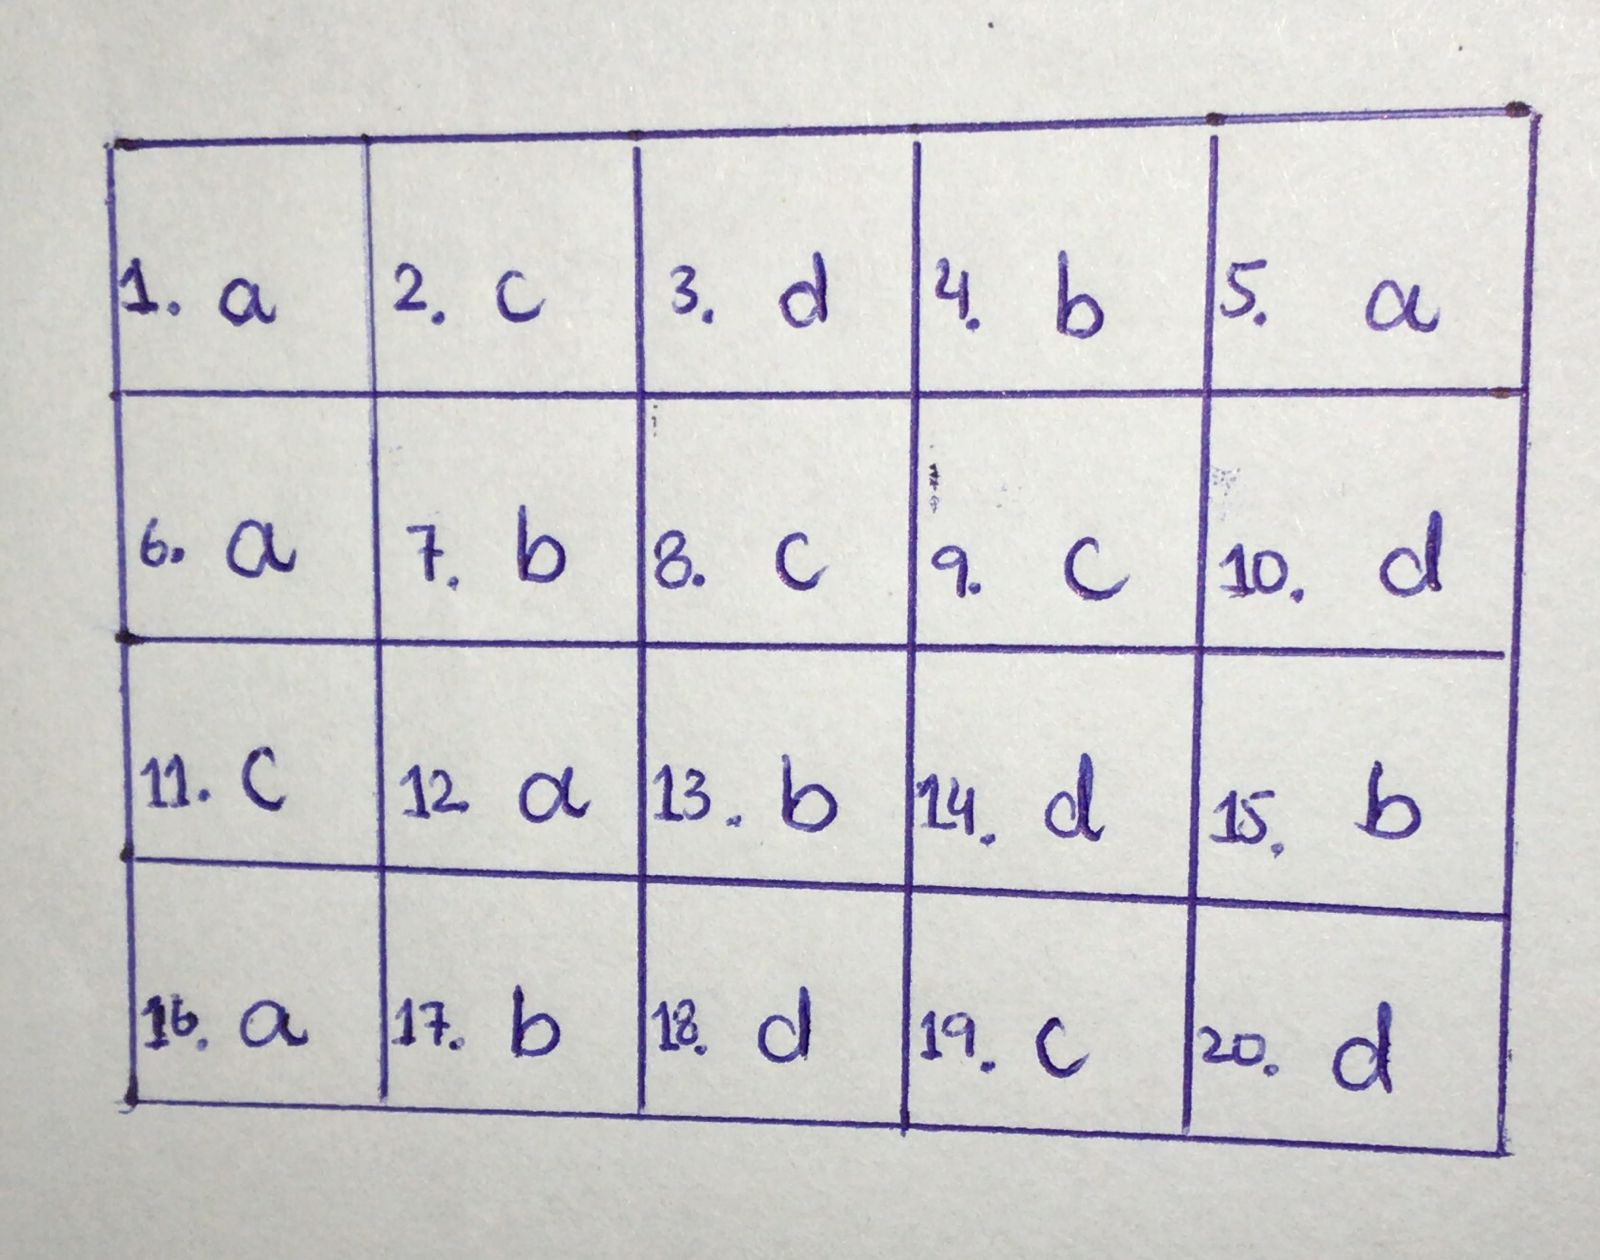 1. a 2. c 3. d 4. b 5. a
6. a 7. b 8. c 9. c 10. d
11. c 12 a 13. b 14. d 15. b
16. a 17. b 18. d 19. c 20. d